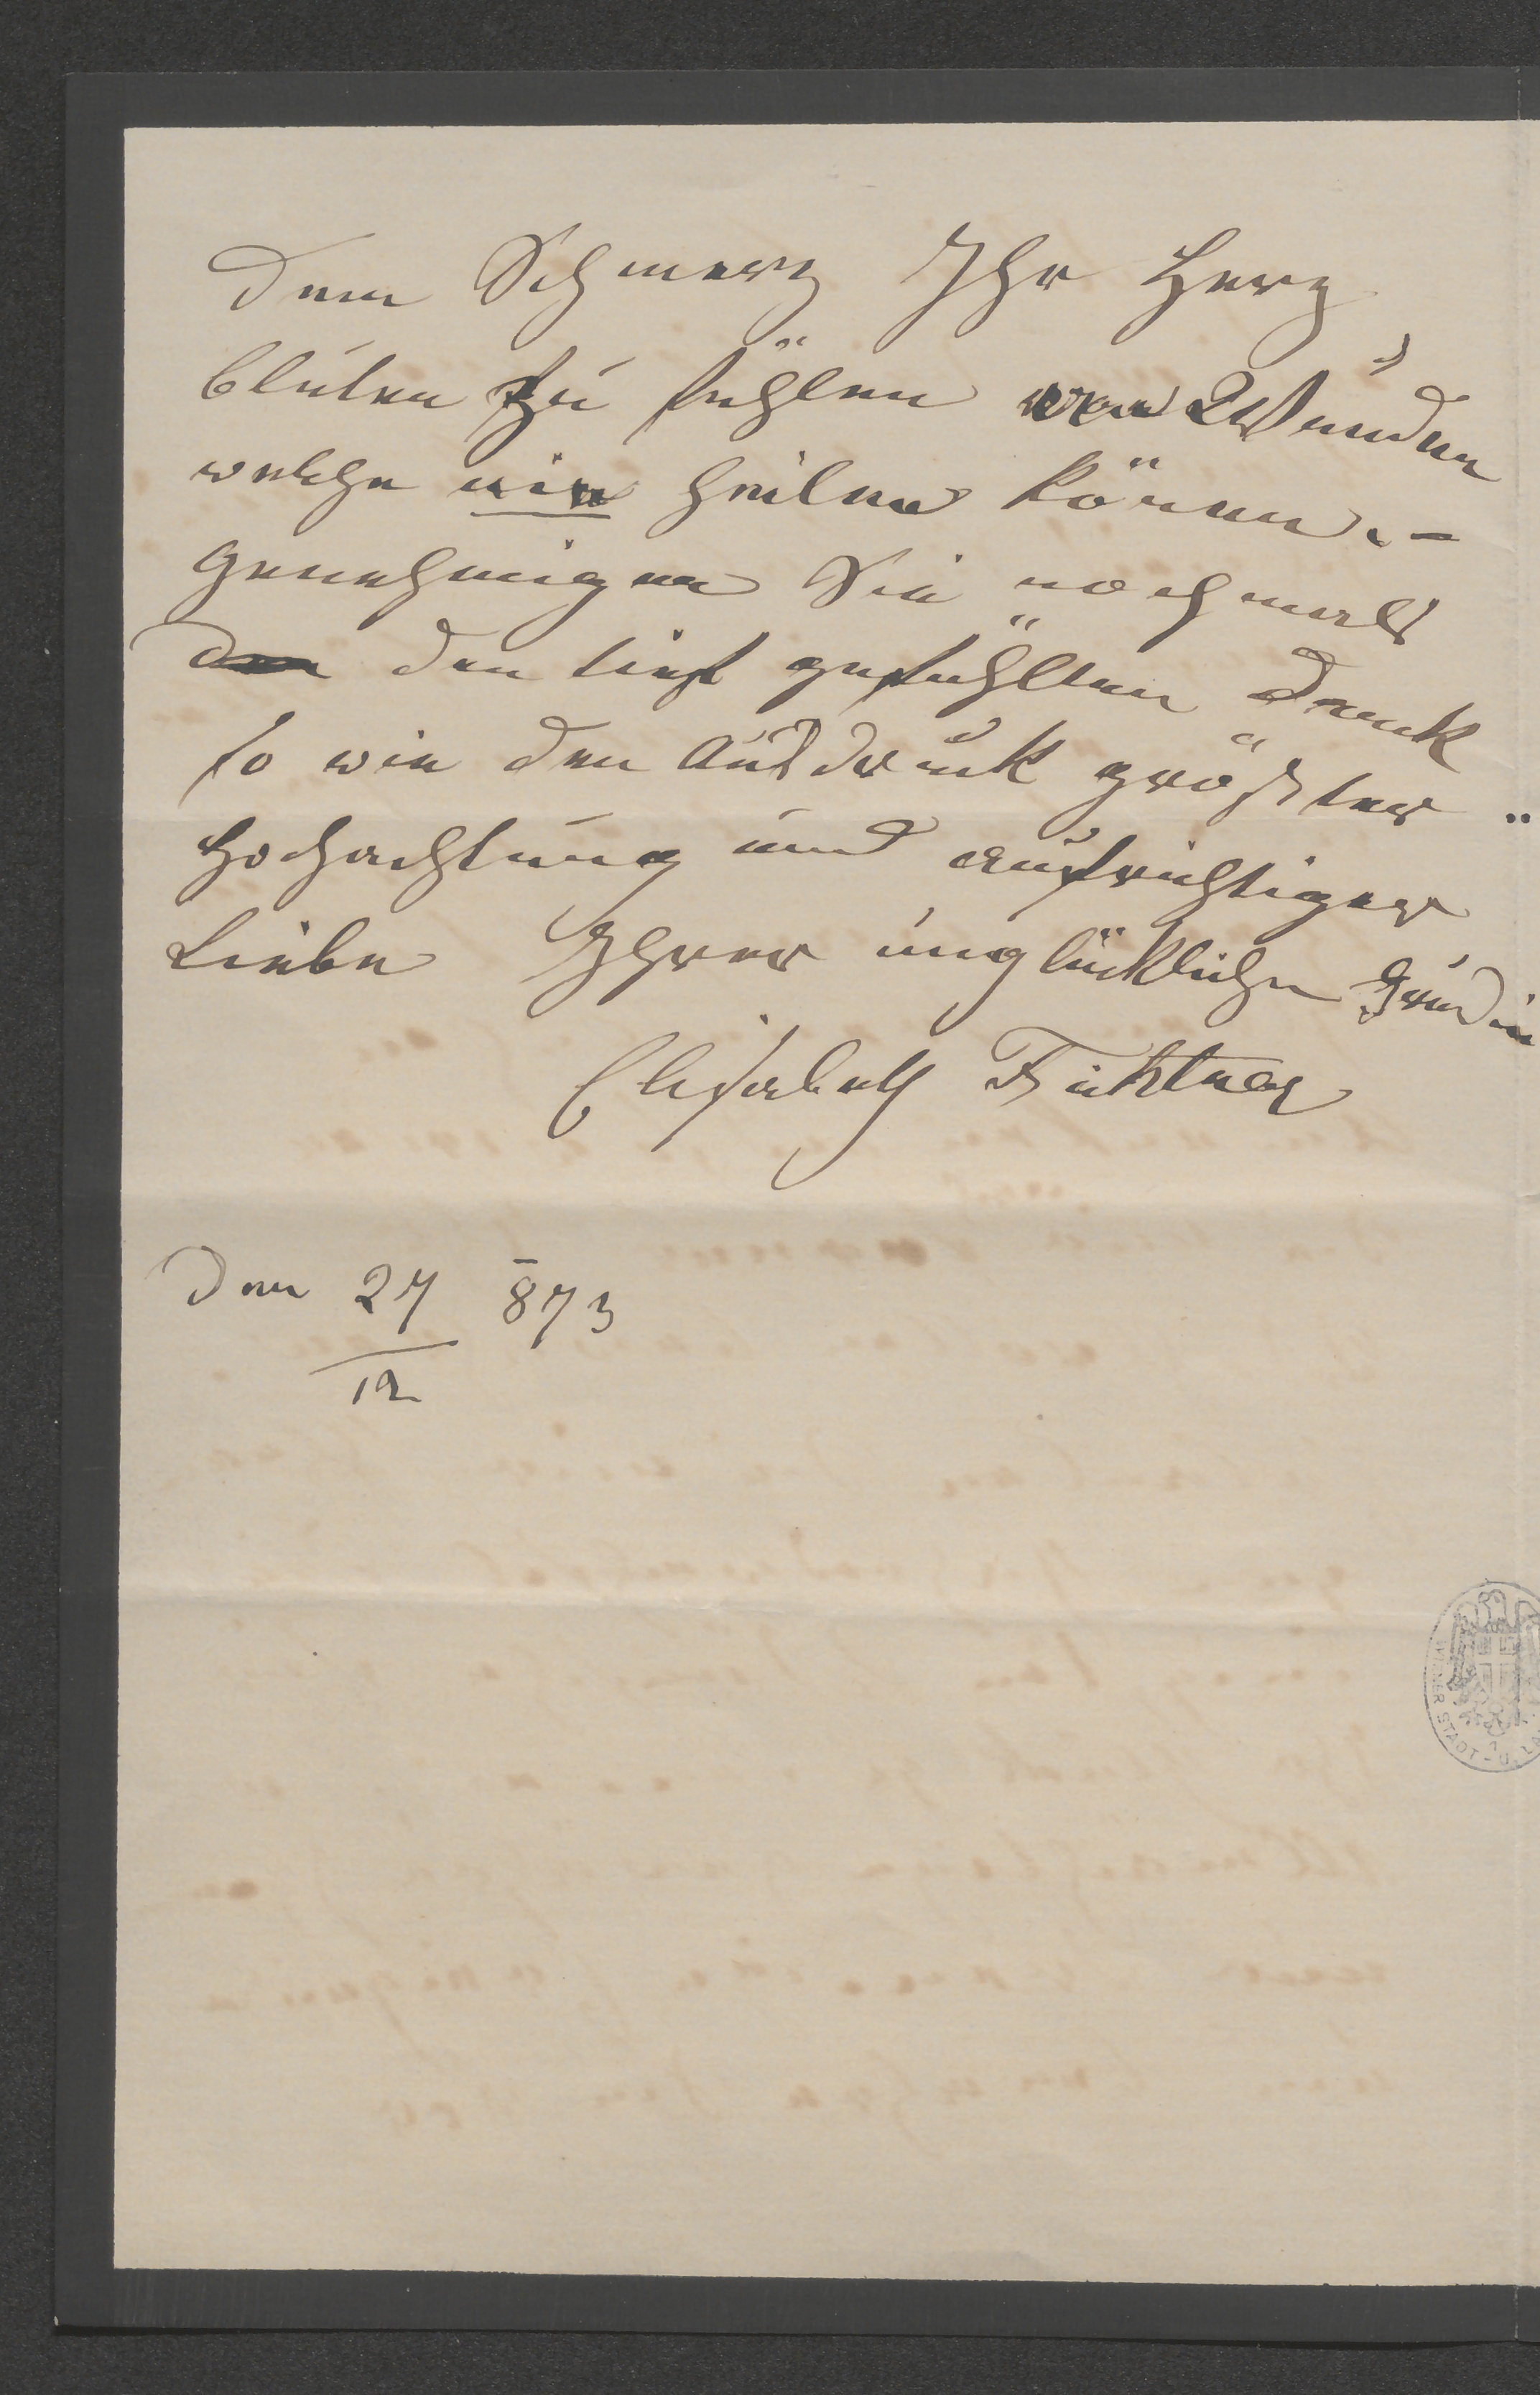 dem Schmerz Ihr Herz
bluten zu fühlen von Wunden
welche nie heilen können. –
Genehmigen Sie nochmals
den den tief gefühlten Dank
so wie den Ausdruck größter
Hochachtung und aufrichtiger
Liebe Ihrer unglücklichen
Elisabeth Fichtner
Den 27 873
12
WIENER STADT - U. LA